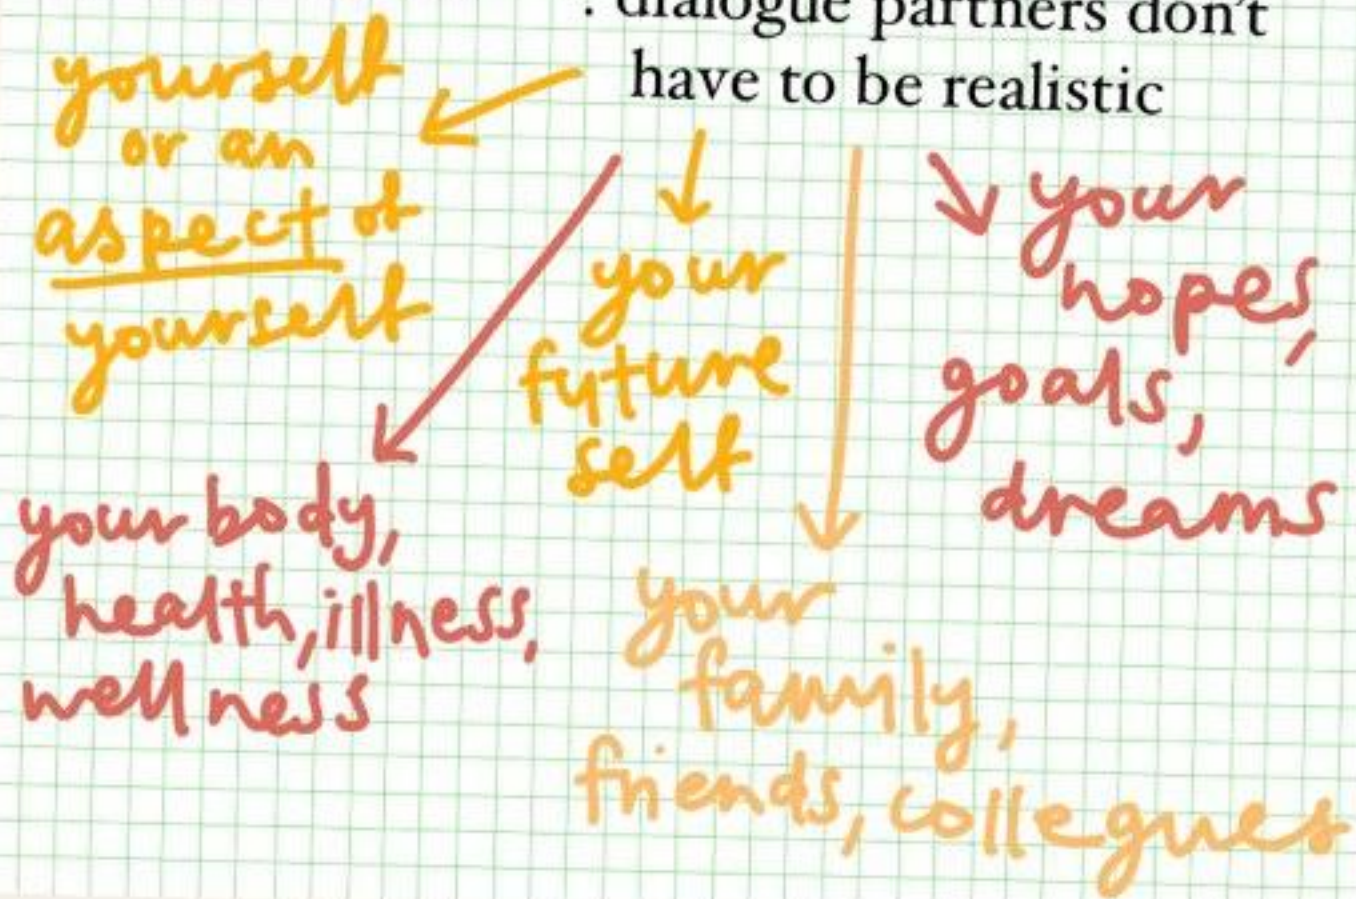 : dialogue partners don't
have to be realistic
yourself
or an
aspect of
yourself
your
future
self
your
hopes,
goals,
dreams
your body,
health, illness,
wellness
your
family,
friends, collegues